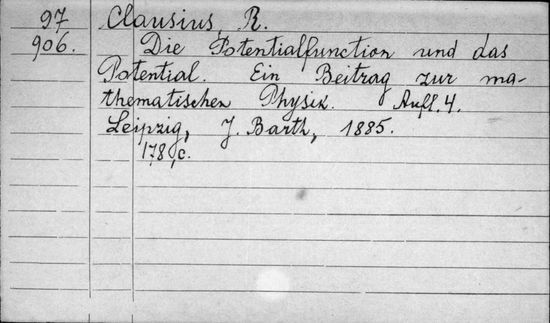 97 Clausius, R.
906. Die Potentialfunction und das
Potential. Ein Beitrag zur ma-
thematischen Physik. Aufl. 4.
Leipzig, J. Barth, 1885.
178 c.